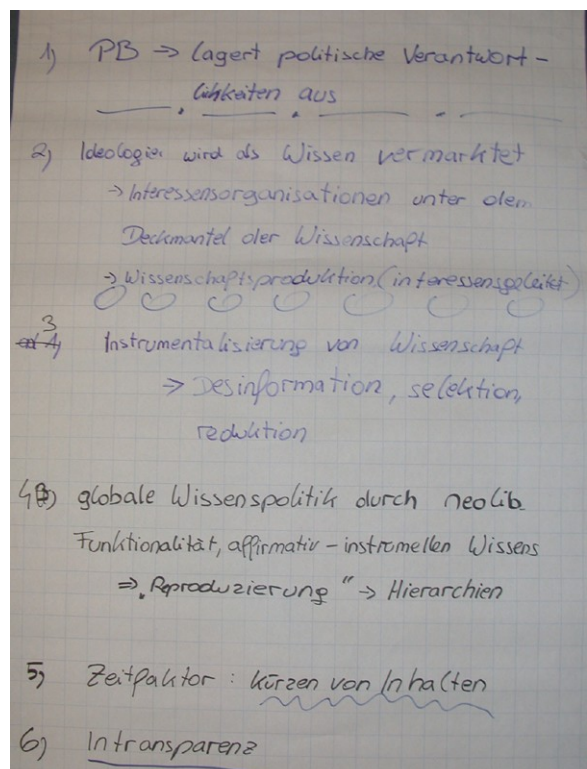 1) PB → lagert politische Verantwort-
lichkeiten aus
2) Ideologie wird als Wissen vermarktet
→ Interessensorganisationen unter dem
Deckmantel der Wissenschaft
→ Wissenschaftsproduktion (interessensgeleitet)
3
Instrumentalisierung von Wissenschaft
→ Desinformation, selektion,
reduktion
4) globale Wissenspolitik durch neolib.
Funktionalität, affirmativ-instromellen Wissens
⇒ „Reproduzierung" → Hierarchien
5) Zeitfaktor: kürzen von Inhalten
6) Intransparenz